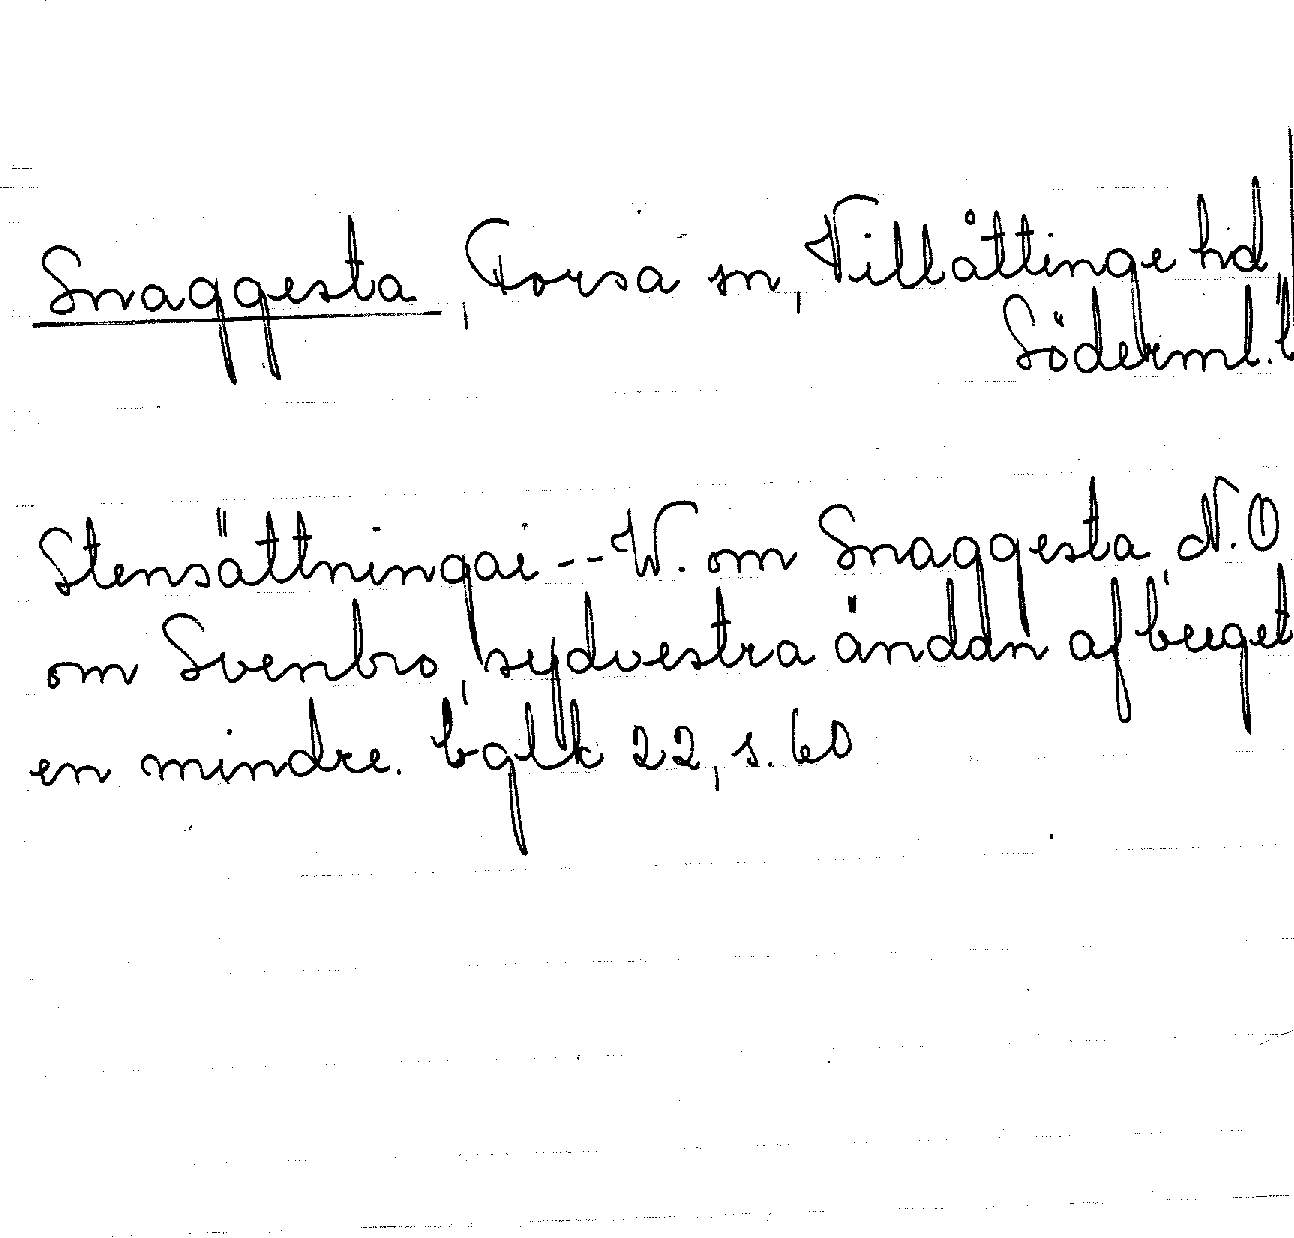 Snaggesta, Forsa sn, Villåttinge hd,
Söderml. l
Stensättningar -- W. om Snaggesta N.O
om Svenbro, sydvestra ändan af berget
en mindre. bglk 22, s. 60